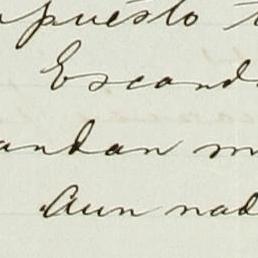 puesto
Escand
andan m
Aun nad